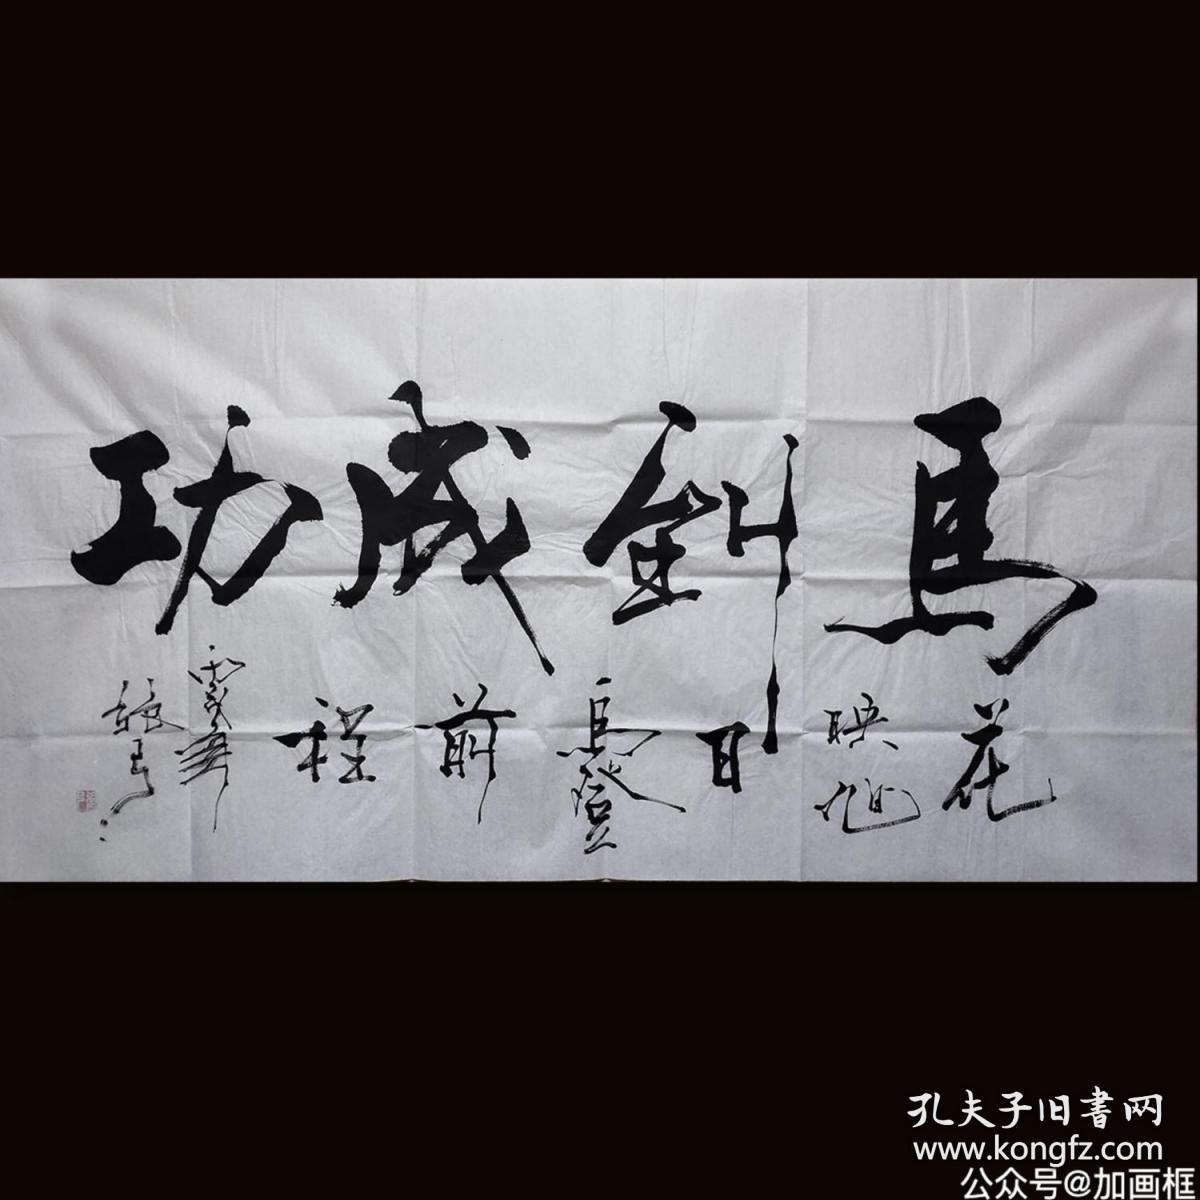 馬到成功
花映旭日馬登前程
張
孔夫子旧書网
www.kongfz.com
公众号@加画框